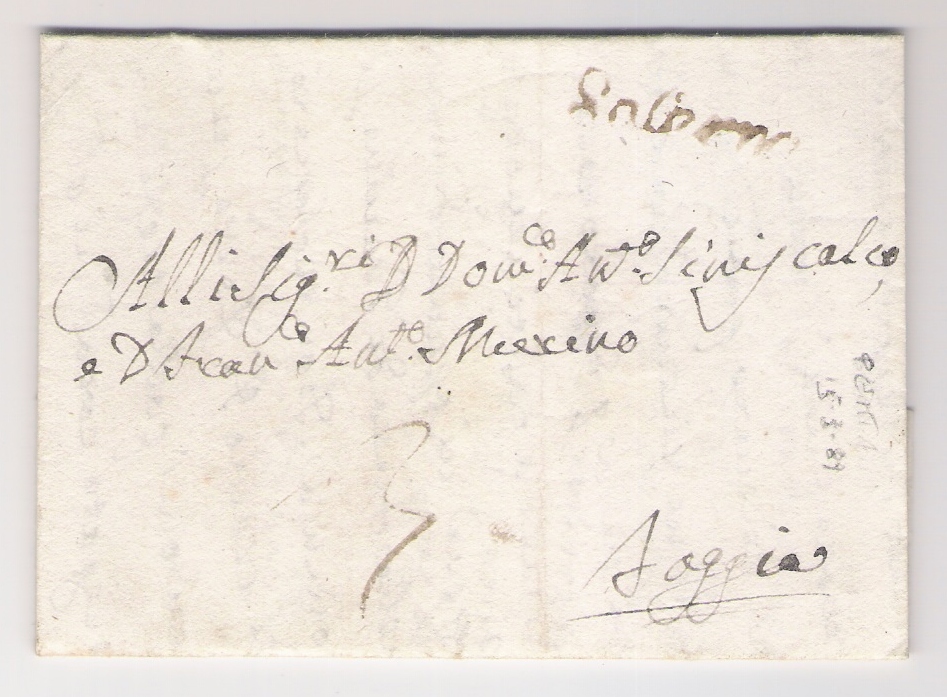 Salerno
Alli Sig.ri D Dom.co Ant.o Siniscalco,
e D Fran.co Ant.o Merino
3
Foggia
PENTA
15-3-89